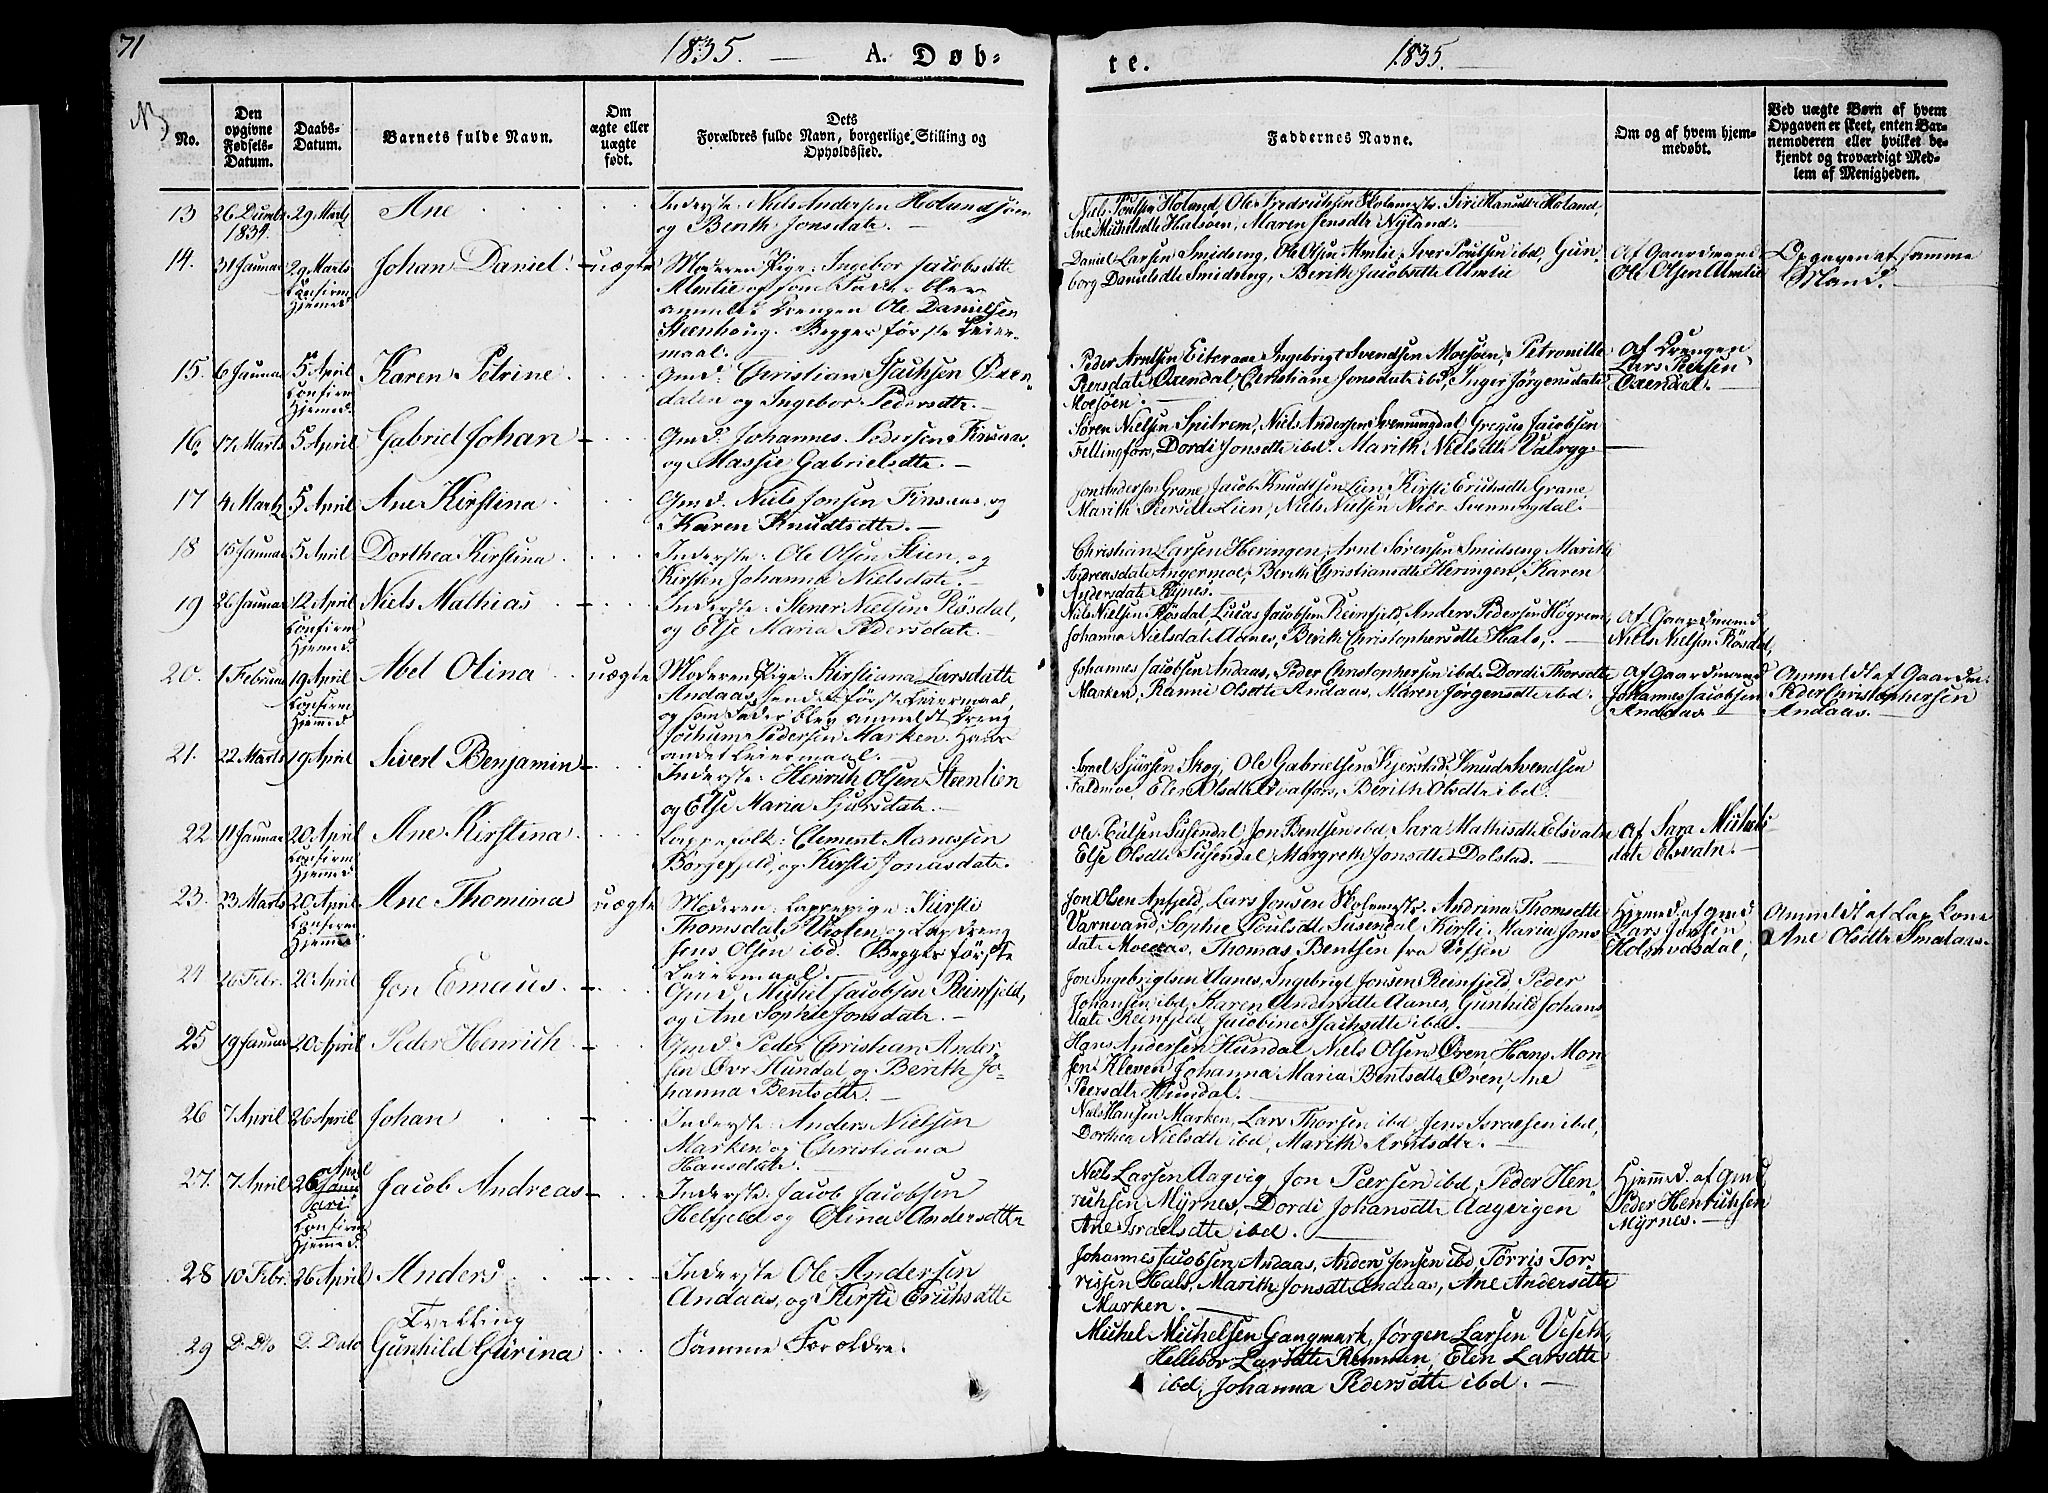 71
1835. — A. Døb-
te. 1835. —
No.
Den opgivne Fødsels-Datum.
Daabs-Datum.
Barnets fulde Navn.
Om ægte eller uægte født.
Dets Forældres fulde Navn, borgerlige Stilling og Opholdssted.
Faddernes Navne.
Om og af hvem hjem-medøbt.
Ved uægte Børn af hvem Opgaven er skeet, enten Bar-nemoderen eller hvilket be-kjendt og troværdigt Med-lem af Menigheden.
13 26 Decembr 1834. 29 Marts Ane
Inderste: Niels Andersen Holand
og Berith Jonsdatr. —
Niels Poulsen Holand, Ole Fredrichsen Skolemstr. Siri Hansdtr Holand,
Ane Michelsdtr Halsøen, Maren Jensdtr Nyland
14. 31 Januar 29 Marts Confirm Hjemmed Johan Daniel. uægte
Moderen Pige: Ingebor Jacobsdtr
Almlie og som Fader blev
anmeldt Drengen Ole Danielsen
Steenhoug. Begges første Leier-
maal.
Daniel Larsen Smidseng, Ole Olsen Almlie, Iver Poulsen ibd, Gun-
borg Danielsdtr Smidseng, Berith Jacobsdtr Almlie
Af Gaardmand
Ole Olsen Almlie
Opgaven af samme
Mand.
15. 6 Januar 5 April Confirm Hjemmed. Karen Petrine
Gmd. Christian Isachsen Øxen-
dalen og Ingebor Pedersdtr. —
Peder Arntsen Eiteraae Ingebrigt Svendsen Moesøen, Petronille
Peersdatr Oxendal, Christiane Jonsdatr ibd, Inger Jørgensdatr
Moesøen. —
Af Drengen
Lars Peersen
Oxendal. —
16. 17 Marts 5 April Gabriel Johan
Gmd. Johannes Pedersen Finsaas
og Massie Gabrielsdtr. —
Søren Nielsen Spitrem, Niels Andersen Svenningdal, Gregus Jacobsen
Fellingfors, Dordi Jonsdtr ibd. Marith Nielsdtr Valryg. —
17 4 Marts 5 April Ane Kirstina
Gmd. Niels Jonsen Finsaas og
Karen Knudtsdtr. —
Jon Andersen Grane, Jacob Knudtsen Lien, Kirsti Erichsdtr Grane,
Marith Peersdtr Lien, Niels Nielsen Svenningdal. —
18 15 Januar 5 April Dorthea Kirstina
Inderste: Ole Olsen Stien og
Kirsten Johanna Nielsdatr. —
Christian Larsen Heringen, Arnt Sørensen Smidseng Marith
Andreasdatr Angermoe, Berith Christiansdtr Heringen, Karen
Andersdatr Rynes. —
19 26 Januar 12 April Confirm Hjemmed. Niels Mathias
Inderste: Stener Nielsen Røsdal,
og Else Maria Pedersdatr —
Niels Nielsen Røsdal, Lucas Jacobsen Reinfjeld, Anders Pedersen Høgrem
Johanna Nielsdal Aanes, Berith Christophersdtr Hals, —
Af Gaardmand
Niels Nielsen Røsdal,
20. 1 Februar 19 April Confirm Hjemmed Abel Olina uægte
Moderen Pige: Kirstiana Larsdatr
Andaas, hendes første Leiermaal,
og som Fader blev anmeldt Dreng
Jochum Pedersen Marken. Hans
andet Leiermaal. —
Johannes Jacobsen Andaas, Peder Christophersen ibd. Dordi Thorsdtr
Marken, Ranni Olsdtr Andaas, Maren Jørgensdtr ibd.
Af Gaardmand
Johannes Jacobsen
Andaas —
Anmeldt af Gaardm.
Peder Christophersen
Andaas. —
21. 22 Marts 19 April Sivert Benjamin
Inderste: Heinrich Olsen Steenlien
og Else Maria Sjursdatr. —
Israel Sjürsen Skog, Ole Gabrielsen Kjerstad, Knud Svendsen
Faldmoe, Elen Olsdtr Qvalfors, Berith Olsdtr ibd.
22. 11 Januar 20 April Confirm Hjemmed Ane Kirstina.
Lappefolk: Clement Asnessen
Børgefjeld, og Kirsti Jonasdatr.
Ole Poulsen Susendal, Jon Bentsen ibd, Sara Mathisdtr Elsvatn
Else Olsdtr Susendal, Margreth Jonsdtr Dolstad. —
Af Sara Michels-
datr Elsvatn. —
23. 23 Marts 20 April Confirm Hjemmed Ane Thomina uægte
Moderen: Lappepige: Kirsti
Thomsdatr Vesten, og Lap dreng
Jens Olsen ibd. Begges første
Leiermaal.
Jon Olsen Apfjeld, Lars Jonsen Skolemstr. Andrina Thomsdtr
Varnvand, Sophie Poulsdtr Susendal Kirsti Maria Jons-
datr Moeaas, Thomas Bentsen fra Vefsen
Hjemmed. af Gmd
Lars Jonsen
Holmvasdal,
Anmeldt af Lap Kone
Ane Olsdtr Smalaas.
24 26 Febr. 20 April Jon Emaus
Gmd, Michel Jacobsen Reinfjeld,
og Ane Sophie Jonsdatr. —
Jon Ingebrigtsen Aanes, Ingebrigt Jonsen Reinfjeld, Peder
Johansen ibd, Karen Andersdtr Aanes, Gunhild Johans-
datr Reinfjeld Jacobine Isachsdtr ibd.
25 19 Januar 20 April Peder Henrich
Gmd. Peder Christian Ander-
sen Øvr Hundal og Berith Jo-
hanna Bentsdtr. —
Hans Andersen Hundal Niels Olsen Øren, Hans Mon-
sen Kleven, Johanna Maria Bentsdtr Øren, Ane
Peersdtr Hundal. —
26 7 April 26 April Johan
Inderste: Anders Nielsen
Marken og Christiana
Hansdatr. —
Niels Hansen Marken, Lars Thorsen ibd, Jens Israelsen ibd,
Dorthea Nielsdtr ibd, Marith Arntsdtr. —
27. 7 April 26 April Confirm Hjemmed. Jacob Andreas
Inderste: Jacob Jacobsen
Helfjeld og Olina Andersdtr
Niels Larsen Aagvig, Jon Peersen ibd, Peder Hen-
richsen Myrnes, Dordi Johansdtr Aagvigen
Ane Israelsdtr ibd. —
Hjemmed. af Gmd
Peder Henrichsen
Myrnes. —
28 10 Febr. 26 April Anders
Inderste Ole Andersen
Andaas, og Kirsti Erichsdtr
Johannes Jacobsen, Andaas, Anders Jensen ibd Tørris Tør-
rissen Hals, Marith Jonsdtr Andaas, Ane Andersdtr
Marken. —
Tvilling
29 D. Dto D. Dato Günhild Gürina
Samme Forældre.
Michel Michelsen Gangmark, Jørgen Larsen Veseth
Hellebor Larsdtr Remmen, Elen Larsdtr
ibd, Johanna Pedersdtr ibd. —